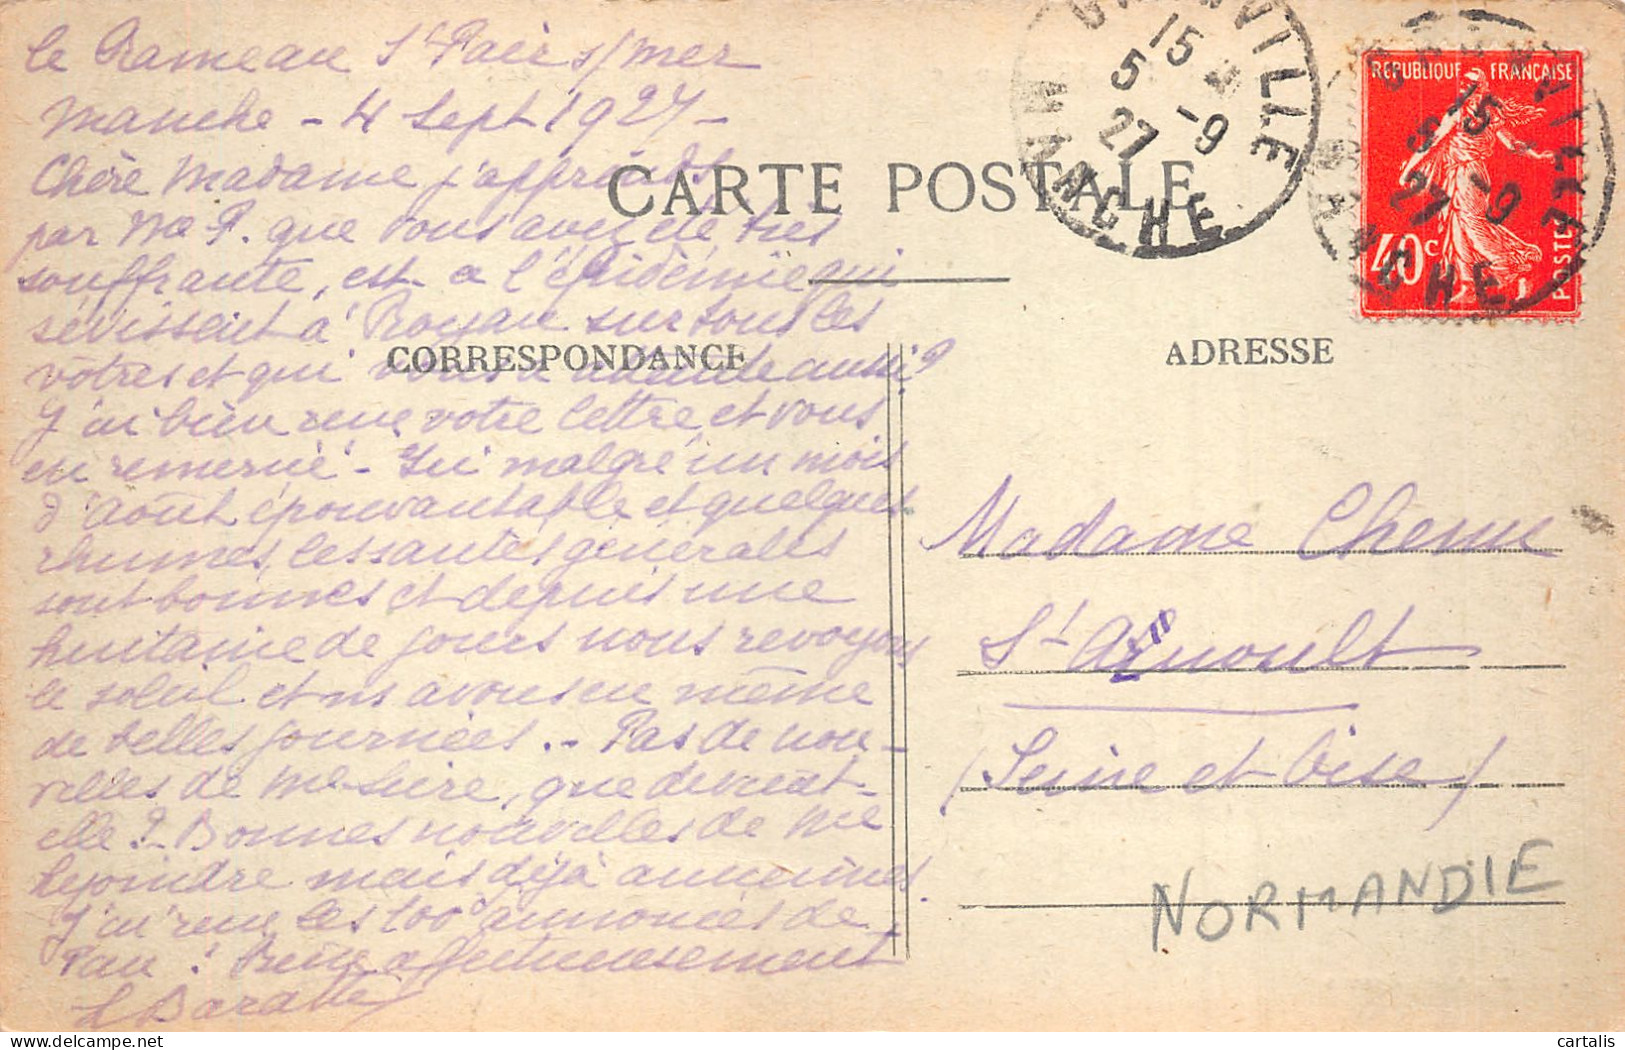 le Rameau St Pair s/mer
Manche - 4 Sept 1927 -
Chère Madame j'apprends
par Me P. que vous avez été très
souffrante, est-ce l'épidémie qui
sévissent à Royan sur tous les
vôtres et qui vous a atteinte aussi ?
J'ai bien reçu votre lettre et vous
en remercie - Ici malgré un mois
d'août épouvantable et quelques
rhumes, les santés générales
sont bonnes et depuis une
huitaine de jours nous revoyons
le soleil et ns avons eu même
de belles journées. - Pas de nou-
velles de Me , que devient-
elle ? - Bonnes nouvelles de Me
mais déjà anciennes.
J'ai reçu les 100 annoncés de
Pau ! Bien affectueusement
CARTE POSTALE
CORRESPONDANCE
ADRESSE
GRANVILLE
MANCHE
15
5 -9
27
RÉPUBLIQUE FRANÇAISE
40c
POSTES
Madame
St Arnoult
(Seine et Oise)
NORMANDIE
cartalis
delcampe.net